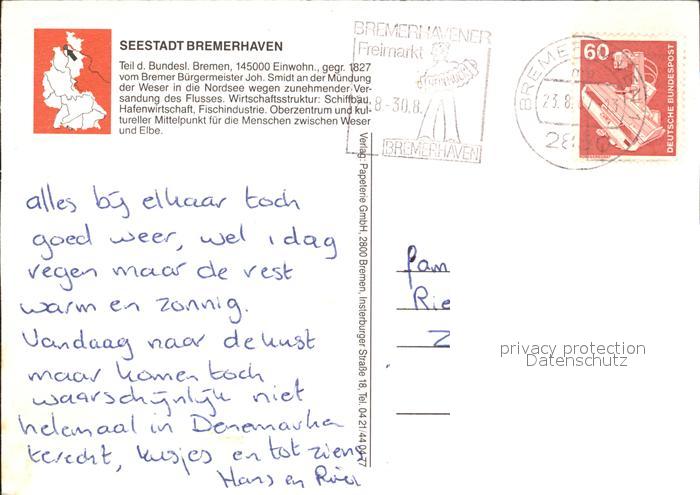 SEESTADT BREMERHAVEN
Teil d. Bundesl. Bremen, 145000 Einwohn., gegr. 1827
vom Bremer Bürgermeister Joh. Smidt an der Mündung
der Weser in die Nordsee wegen zunehmender Ver-
sandung des Flusses. Wirtschaftsstruktur: Schiffbau,
Hafenwirtschaft, Fischindustrie. Oberzentrum und kul-
tureller Mittelpunkt für die Menschen zwischen Weser
und Elbe.
BREMERHAVENER
Freimarkt
8-30.8.
BREMERHAVEN
BREME
23.8.
60
DEUTSCHE BUNDESPOST
alles bij elkaar toch
goed weer, wel 1 dag
regen maar de rest
warm en zonnig.
Vandaag naar de kust
maar komen toch
waarschijnlijk niet
helemaal in Denemarken
terecht, kusjes en tot ziens
Hans en
Verlag: Papeterie GmbH, 2800 Bremen, Insterburger Straße 18, Tel. 04 21/44 04 77
fam
Rie
Z
privacy protection
Datenschutz